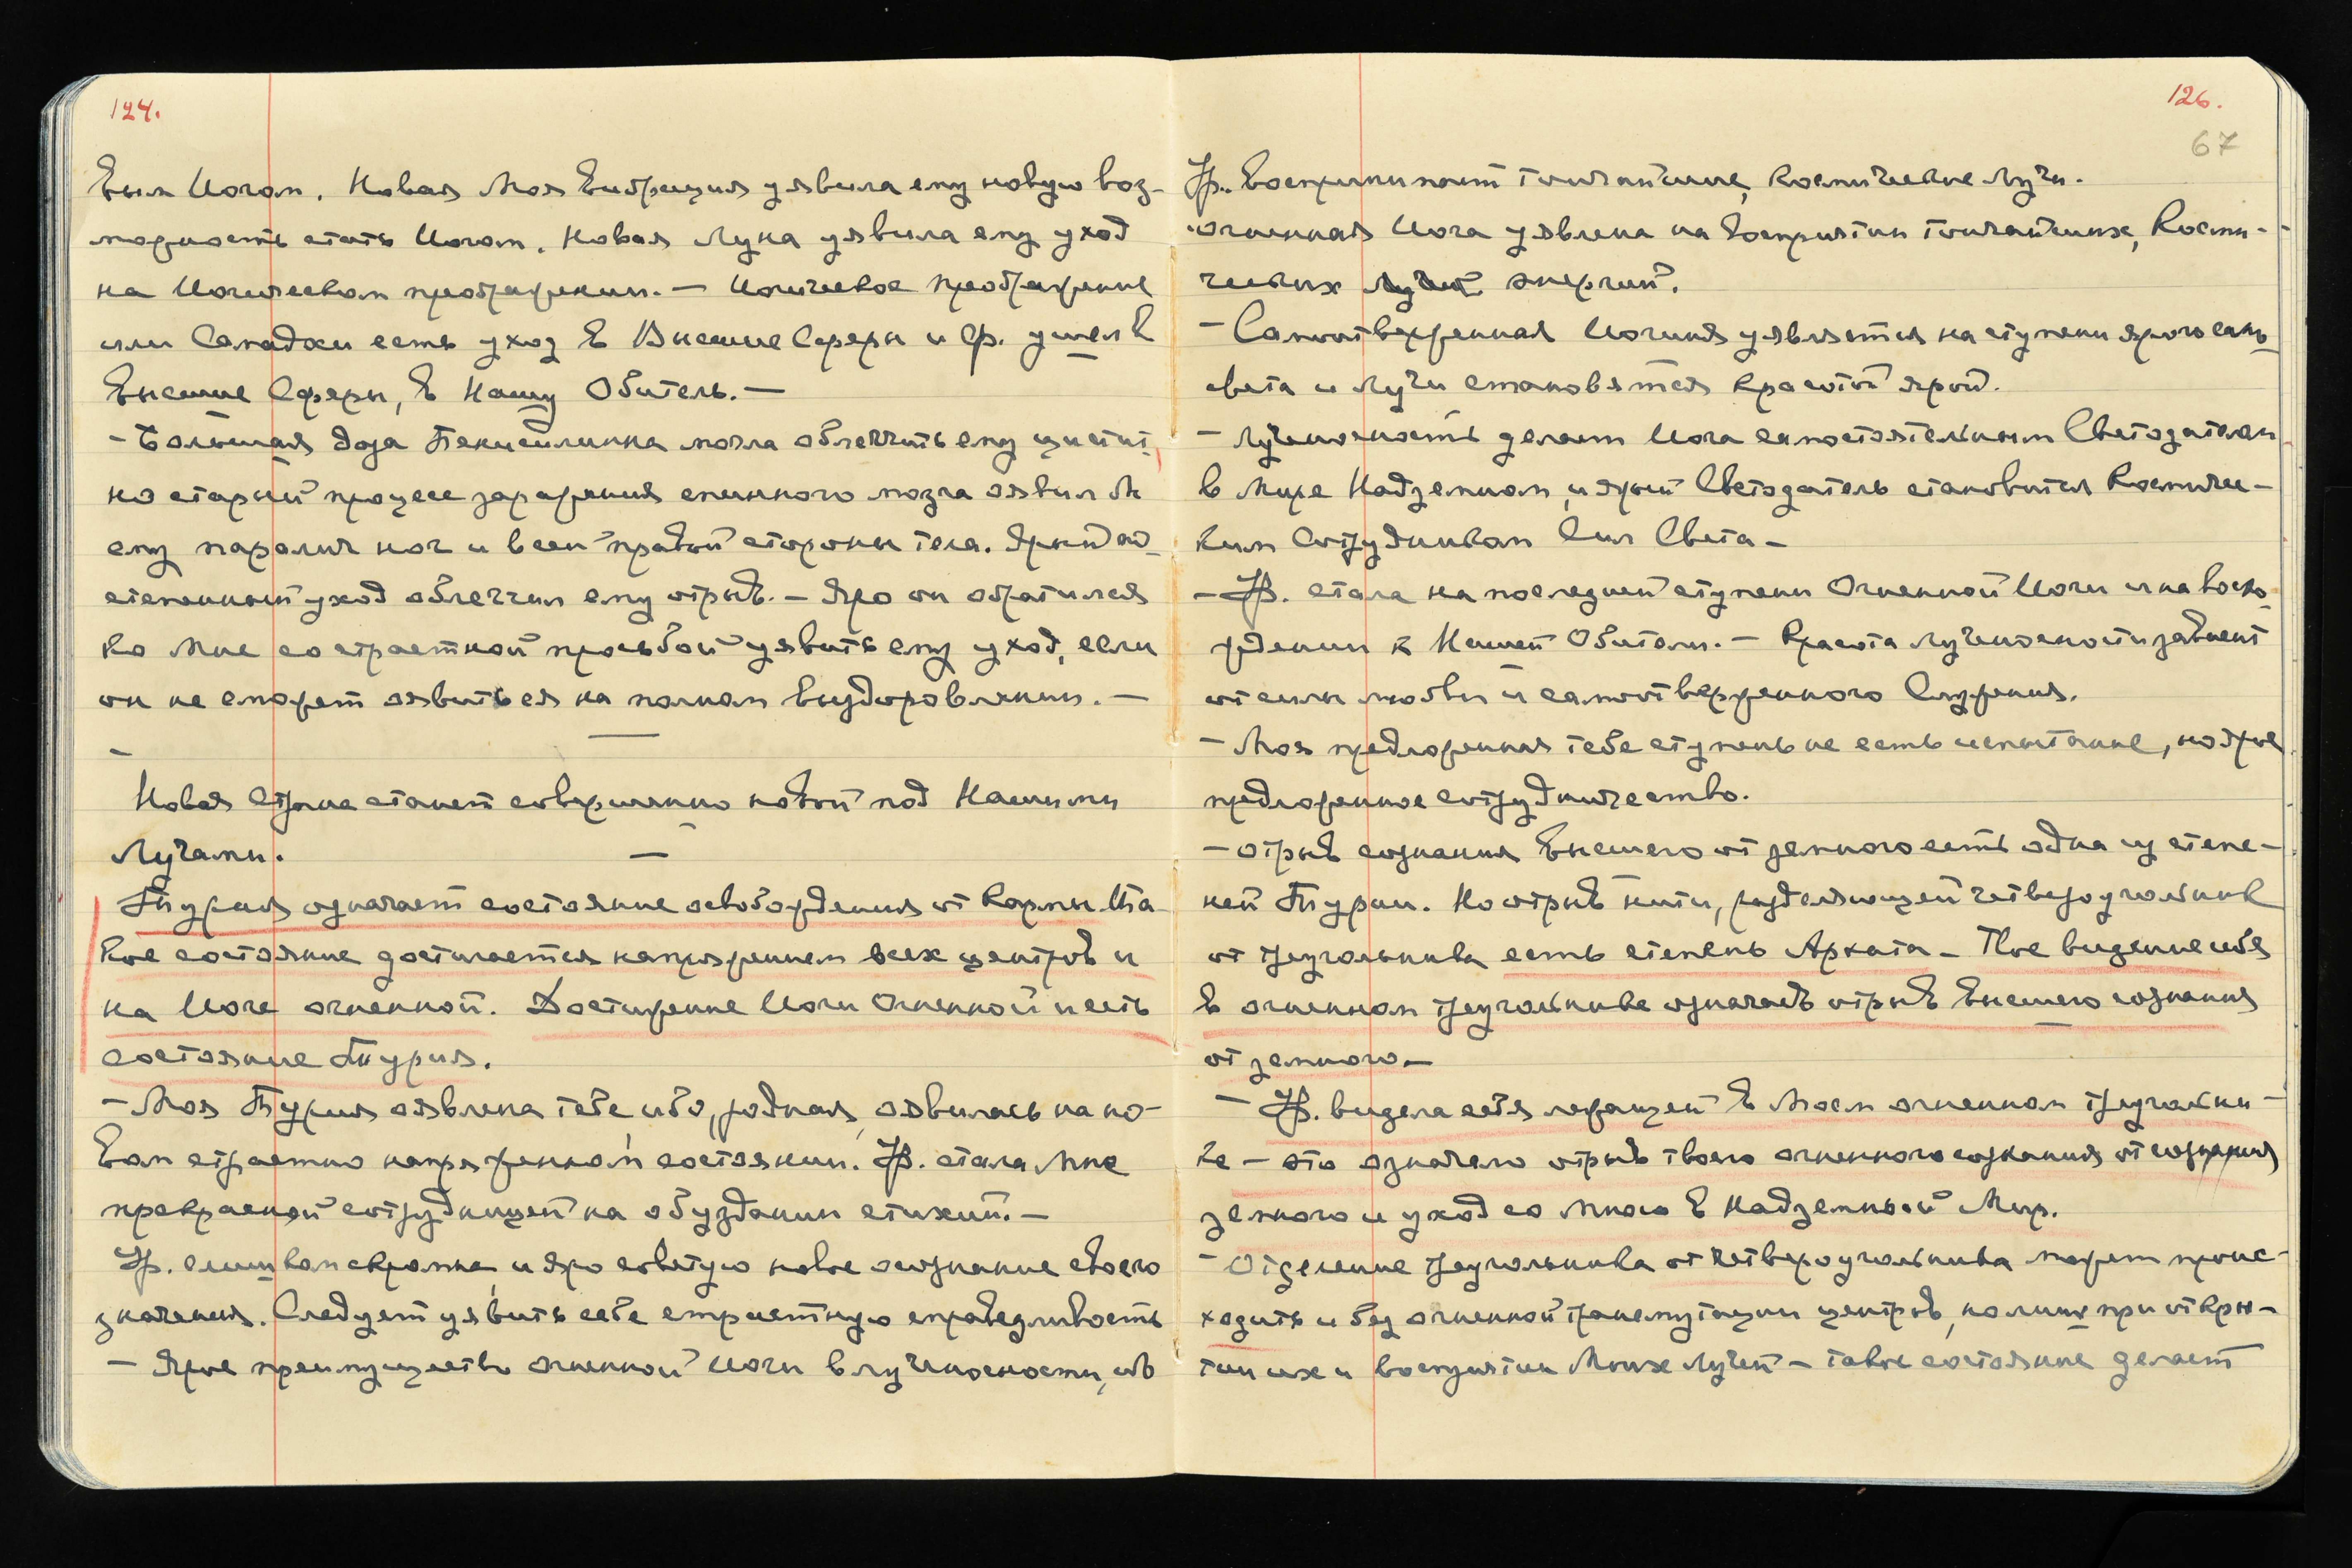 124.
был Йогом. Новая Моя Вибрация уявила ему новую воз-
можность стать Йогом. Новая Луна уявила ему уход
на Йогическом преображении. — Йогическое преображение
или Самадхи есть уход в Высшие Сферы и Ф. ушел в
Высшие Сферы, в Нашу Обитель. —
- Большая доза Пенисиллина могла облегчить ему цистит,
но старый процесс заражения спинного мозга оявил бы
ему паралич ног и всей правой стороны тела. Ярый од-
степенный уход облегчил ему отрыв. — Яро он обратился
ко Мне со страстной просьбой уявить ему уход, если
он не сможет оявиться на полном выздоровлении. —
—
Новая Страна станет совершенно новой под Нашими
Лучами. —
Турия означает состояние освобождения от Кармы. Та-
кое состояние достигается напряжением всех центров и
на Йоге огненной. Достижение Йоги Огненной и есть
состояние Турия.
- Моя Турия оявлена тебе ибо, родная, оявилась на но-
вом страстно напряженном состоянии. Ур. стала Мне
прекрасной сотрудницей на обуздании стихий. —
Ур. слишком скромна, и яро советую новое осознание своего
значения. Следует уявить себе страстную справедливость
- Ярое преимущество огненной Йоги в лученосности, ибо
126.
67
Ур. воспринимает тончайшие, Космические Лучи.
- Огненная Йога уявлена на восприятии тончайших, Косми-
ческих Лучей энергий.
- Самоотверженная Йогиня уявляется на ступени ярого само-
света и Лучи становятся красотой ярой.
- Лученосность делает Йога самостоятельным Светодателем
в Мире Надземном, и ярый Светодатель становится Космичес-
ким Сотрудником Сил Света —
- Ур. стала на последней ступени Огненной Йоги и на восхо-
ждении к Нашей Обители. — Красота лученосности зависит
от силы любви и самоотверженного Служения.
- Моя предложенная тебе ступень не есть испытание, но ярое
предложенное сотрудничество.
- Отрыв сознания высшего от земного есть одна из степе-
ней Турии. Но отрыв нити, разделяющей четвероугольник
от треугольника есть степень Архата — Твое видение себя
в огненном треугольнике означает отрыв высшего сознания
от земного —
- Ур. видела себя лежащей в Моем огненном треугольни-
ке — это означало отрыв твоего огненного сознания от сознания
земного и уход со Мною в Надземный Мир.
- Отделение треугольника от четвероугольника может проис-
ходить и без огненной трансмутации центров, но лишь при откры-
тии их и восприятии Моих Лучей — такое состояние делает